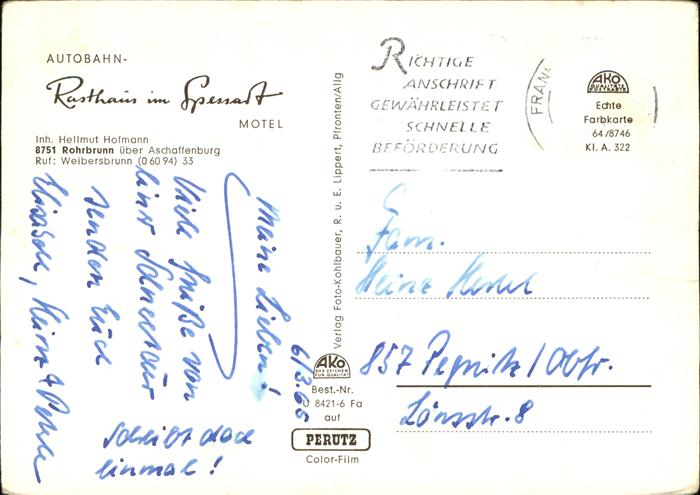 AUTOBAHN-
Rasthaus im Spessart
MOTEL
Inh. Hellmut Hofmann
8751 Rohrbrunn über Aschaffenburg
Ruf: Weibersbrunn (0 60 94) 33
6/3.65
Meine Lieben!
Viele Grüße von
einer Schneetour
senden Euch
Elisabeth, Heinz +
Schreibt doch
einmal!
Verlag Foto-Kohlbauer, R. u. E. Lippert, Pfronten/Allg
AKO
DAS ZEICHEN
FÜR QUALITÄT
Best.-Nr.
U 8421-6 Fa
auf
PERUTZ
Color-Film
RICHTIGE
ANSCHRIFT
GEWÄHRLEISTET
SCHNELLE
BEFÖRDERUNG
FRAN
AKO
QUALITÄTS
Echte
Farbkarte
64/8746
Kl. A. 322
Fam.
Heinz
857 Pegnitz/Obfr.
Lönsstr. 8